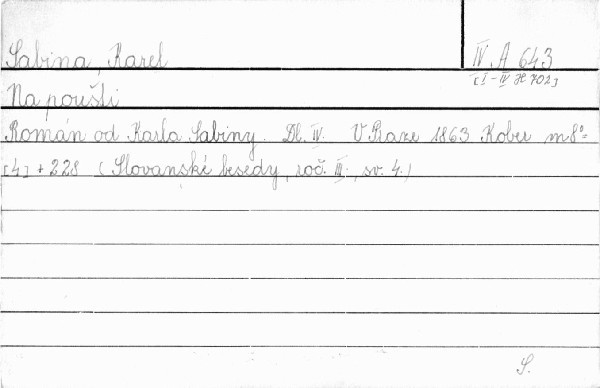 Sabina, Karel
IV A 643
[I-IV H 702]
Na poušti
Román od Karla Sabiny. Dl. IV. V Praze 1863 Kober m 8°=
[4] + 228 (Slovanské besedy, roč. III., sv. 4.)
S.